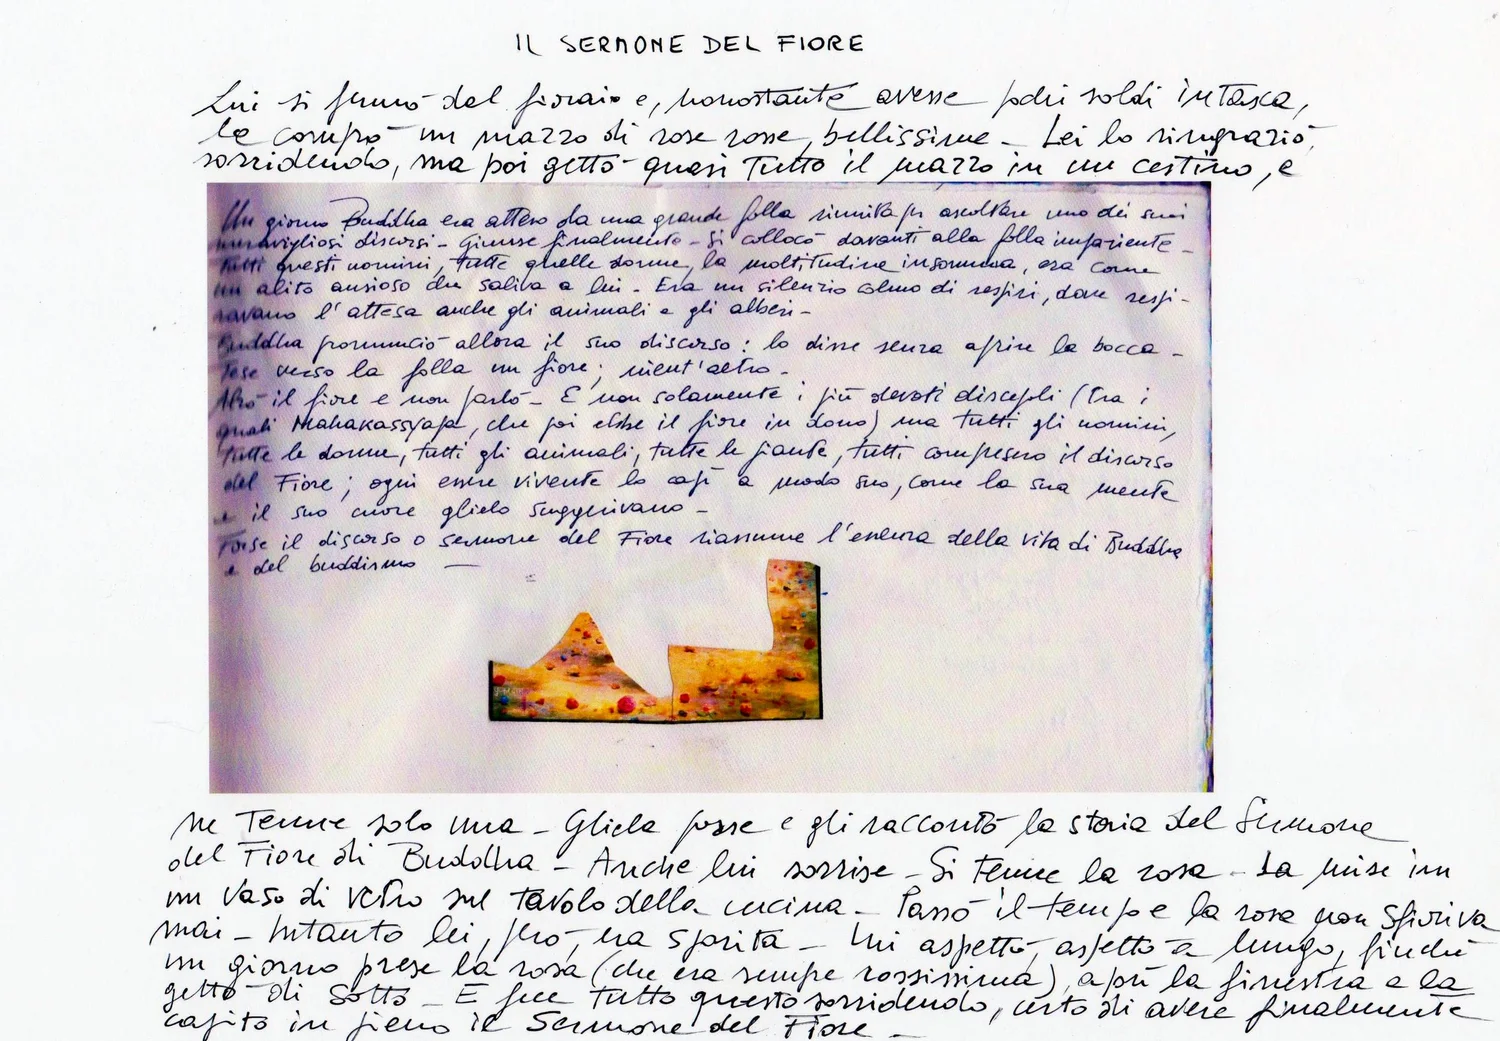 IL SERMONE DEL FIORE
Lui si fermò dal fioraio e, nonostante avesse pochi soldi in tasca,
le comprò un mazzo di rose rosse, bellissime - Lei lo ringraziò,
sorridendo, ma poi gettò quasi tutto il mazzo in un cestino, e
Un giorno Buddha era atteso da una grande folla riunita per ascoltare uno dei suoi
meravigliosi discorsi - Giunse finalmente - Si collocò davanti alla folla impaziente -
Tutti questi uomini, tutte quelle donne, la moltitudine insomma, era come
un alito ansioso che saliva a lui - Era un silenzio colmo di respiri, dove respi-
ravano l'attesa anche gli animali e gli alberi -
Buddha pronunciò allora il suo discorso: lo disse senza aprire la bocca -
Tese verso la folla un fiore; nient'altro -
Alzò il fiore e non parlò - E non solamente i più devoti discepoli (tra i
quali Mahakassyapa, che poi ebbe il fiore in dono) ma tutti gli uomini,
tutte le donne, tutti gli animali, tutte le piante, tutti compresero il discorso
del Fiore; ogni essere vivente lo capì a modo suo, come la sua mente
e il suo cuore glielo suggerivano -
Forse il discorso o sermone del Fiore riassume l'essenza della vita di Buddha
e del buddismo -
ne tenne solo una - Gliela porse e gli raccontò la storia del Sermone
del Fiore di Buddha - Anche lui sorrise - Si tenne la rosa - La mise in
un vaso di vetro sul tavolo della cucina - Passò il tempo e la rosa non sfioriva
mai - Intanto lei, però, era sparita - Lui aspettò, aspettò a lungo, finché
un giorno prese la rosa (che era sempre rossissima), aprì la finestra e la
gettò di sotto - E fece tutto questo sorridendo, certo di avere finalmente
capito in pieno il Sermone del Fiore -